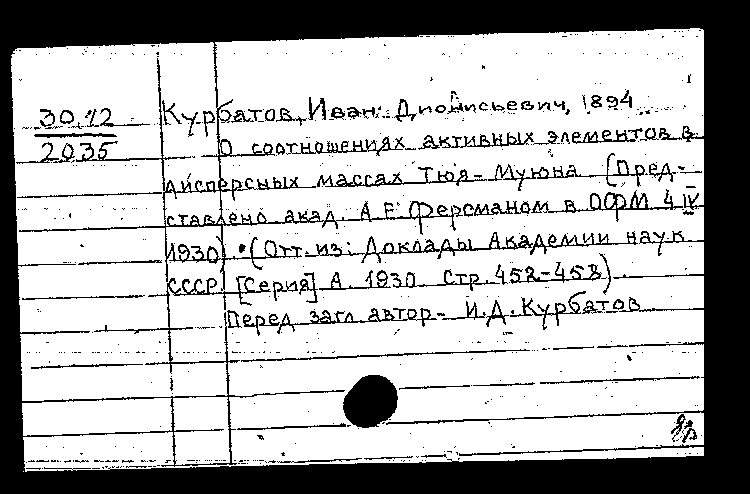 30.12
2035
Курбатов, Иван Дионисьевич, 1894
О соотношениях активных элементов в
дисперсных массах Тюя-Муюна (Пред-
ставлено акад. А.Е. Ферсманом в ОФМ 4 IV
1930). (Отт. из: Доклады Академии наук
СССР. [Серия] А. 1930. Стр. 452-458).
Перед загл. автор- И.Д.Курбатов